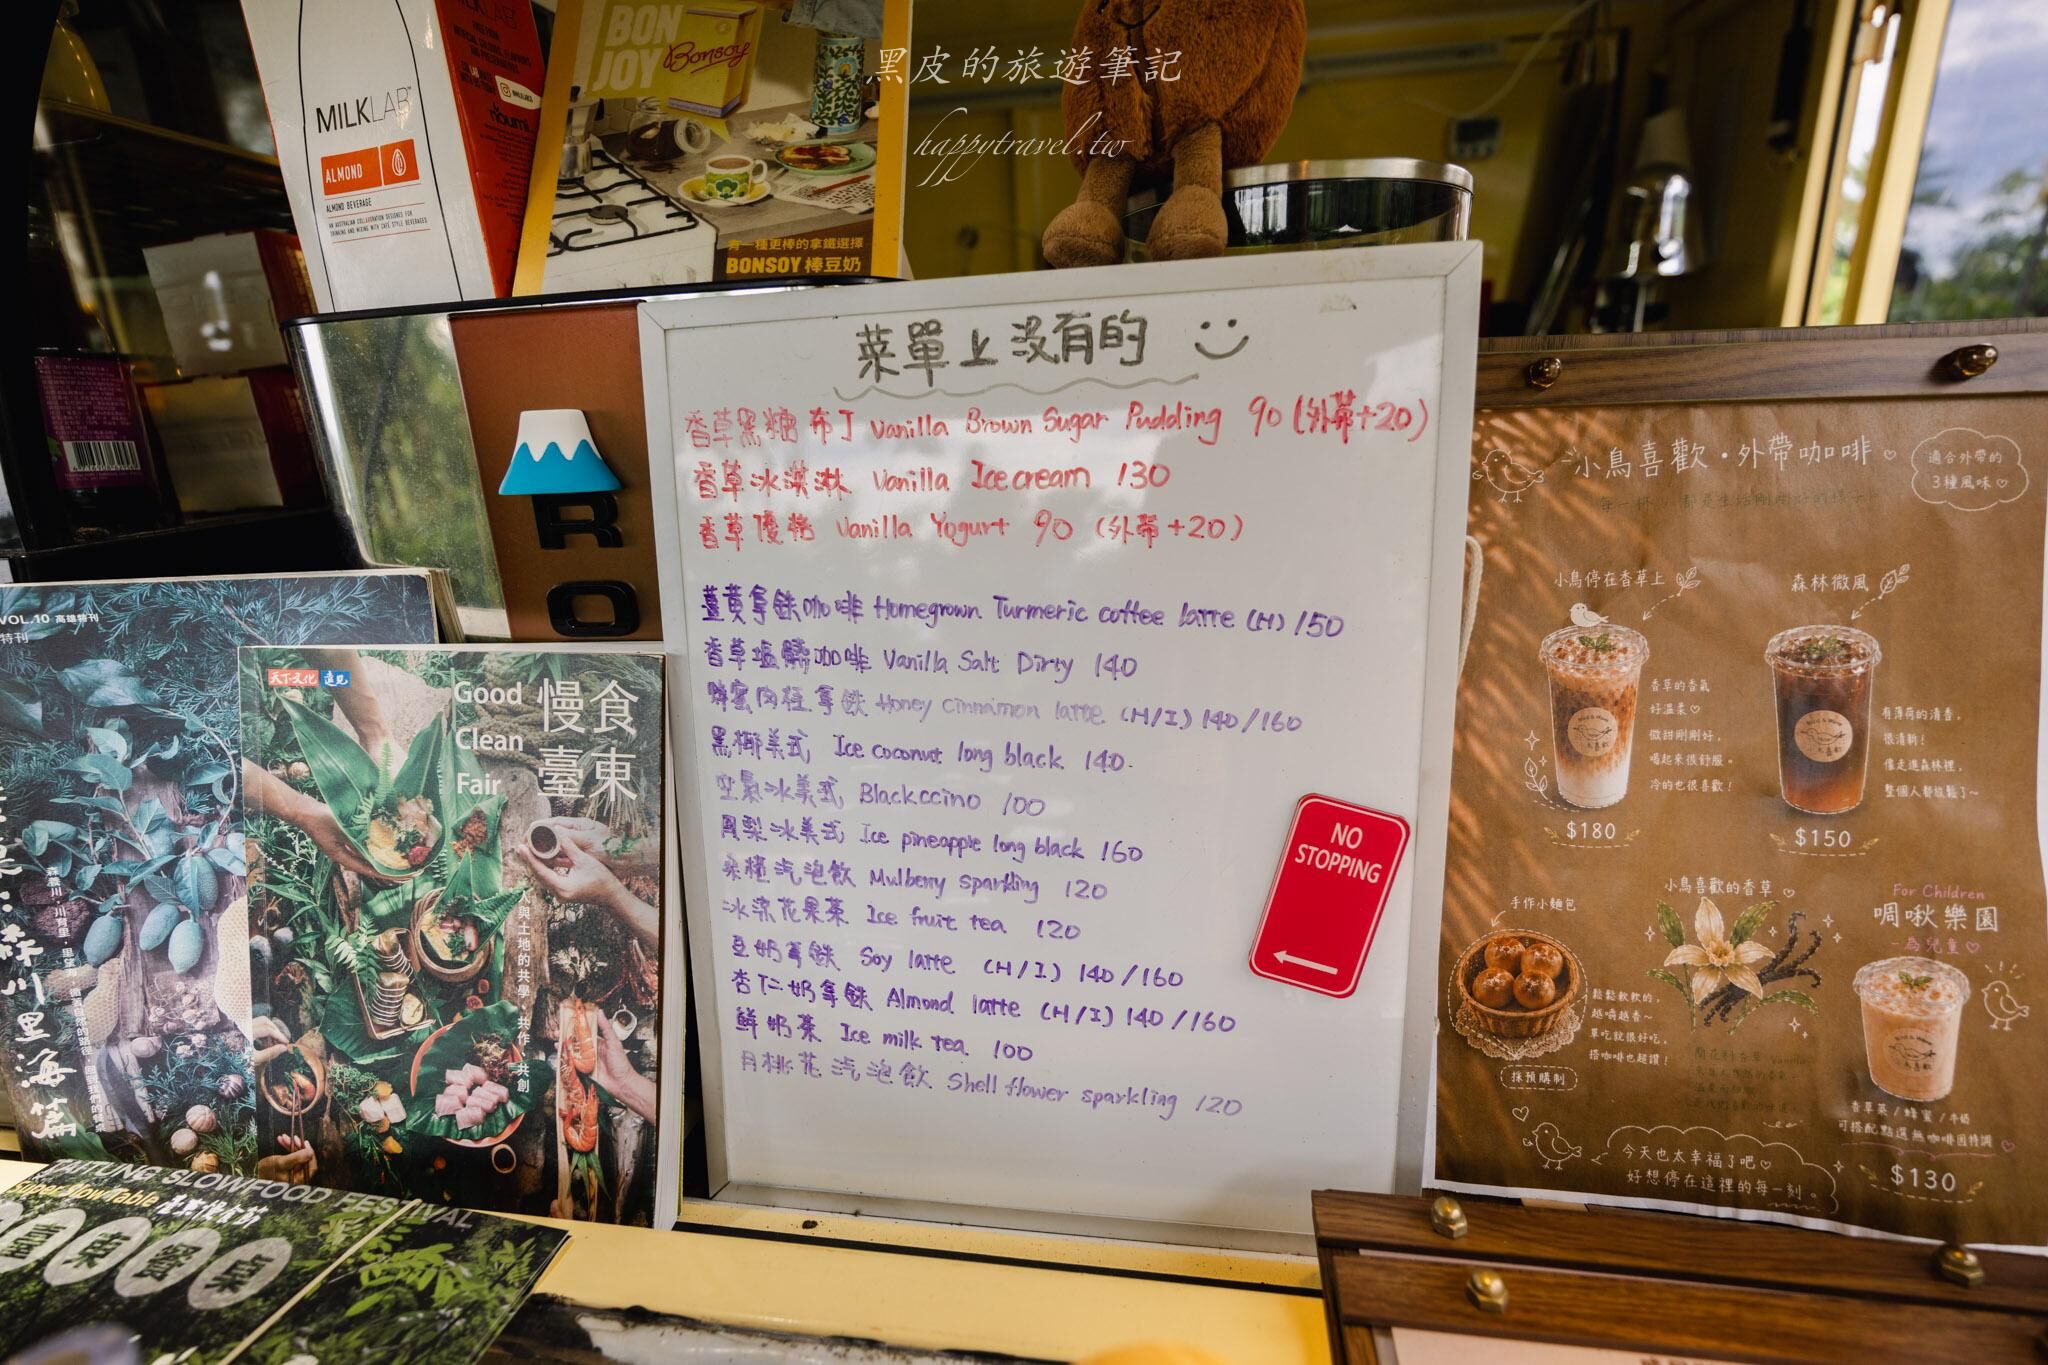 黑皮的旅遊筆記
happytravel.tw
MILKLAB
ALMOND
ALMOND BEVERAGE
AN AUSTRALIAN COLLABORATION DESIGNED FOR
DRINKING AND MIXING WITH CAFÉ STYLE BEVERAGES
BON
JOY
Bonsoy
有一種更棒的拿鐵選擇
BONSOY 棒豆奶
R
O
菜單上沒有的
香草黑糖布丁 Vanilla Brown Sugar Pudding 90 (外帶+20)
香草冰淇淋 Vanilla Ice cream 130
香草優格 Vanilla Yogurt 90 (外帶+20)
薑黃拿鐵咖啡 Homegrown Turmeric coffee latte (H) 150
香草塩髒咖啡 Vanilla Salt Dirty 140
蜂蜜肉桂拿鐵 Honey cinnamon latte (H/I) 140/160
黑椰美式 Ice coconut long black 140
空氣冰美式 Blackccino 100
鳳梨冰美式 Ice pineapple long black 160
桑椹汽泡飲 Mulberry sparkling 120
冰涼花果茶 Ice fruit tea 120
豆奶拿鐵 Soy latte (H/I) 140/160
杏仁奶拿鐵 Almond latte (H/I) 140/160
鮮奶茶 Ice milk tea 100
月桃花汽泡飲 Shell flower sparkling 120
NO
STOPPING
VOL.10 高雄特刊
特刊
森川里海篇
天下文化 遠見
Good
Clean
Fair
慢食
臺東
人與土地的共學、共作、共創
TAITUNG SLOWFOOD FESTIVAL
Super Slow Table
小鳥喜歡・外帶咖啡
適合外帶的
3種風味
小鳥停在香草上
香草的香氣
好溫柔
微甜剛剛好,
喝起來很舒服。
冷的也很喜歡!
$180
森林微風
有薄荷的清香,
很清新!
像走進森林裡,
整個人都放鬆了~
$150
手作小麵包
鬆鬆軟軟的,
越嚼越香~
單吃就很好吃,
搭咖啡也超讚!
採預購制
小鳥喜歡的香草
For Children
啁啾樂園
-為兒童
香草莢/蜂蜜/牛奶
可搭配點選無咖啡因特調
$130
今天也太幸福了吧
好想停在這裡的每一刻。